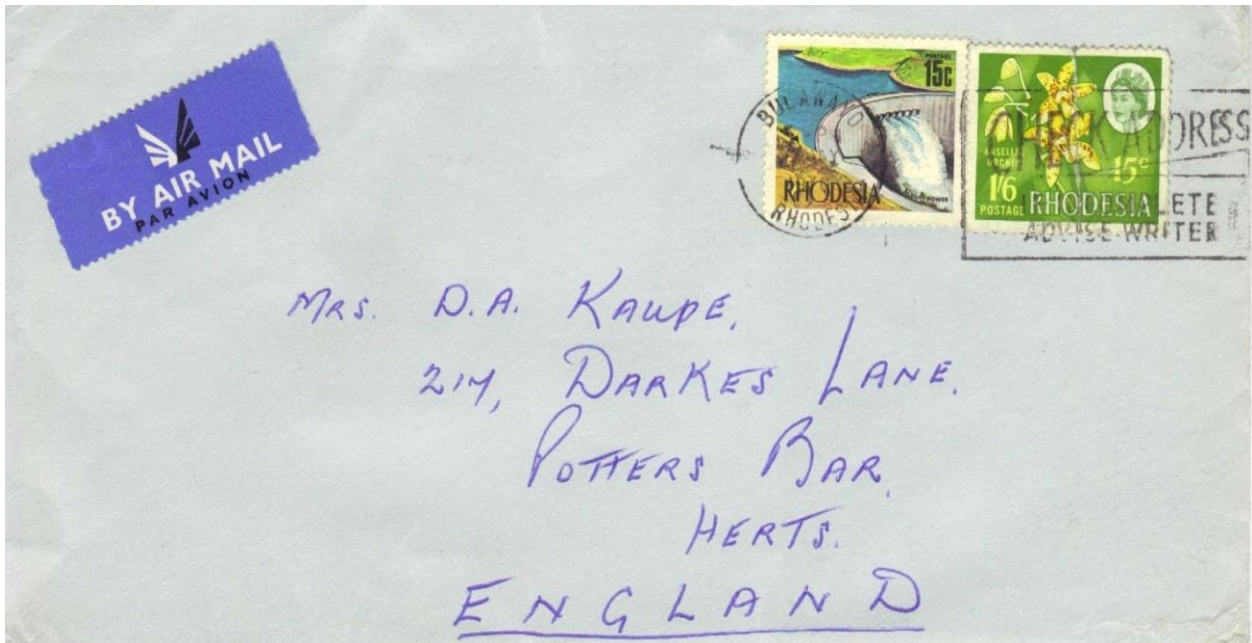 BY AIR MAIL
PAR AVION
POSTAGE
15c
RHODESIA
POWER
ANSELLIA
ORCHID
1'6
15c
POSTAGE
RHODESIA
BULAWAYO
RHODES
CHECK ADDRESS
ETE
ADVISE WRITER
MRS. D.A. KAUPE,
214, DARKES LANE.
POTTERS BAR,
HERTS.
ENGLAND